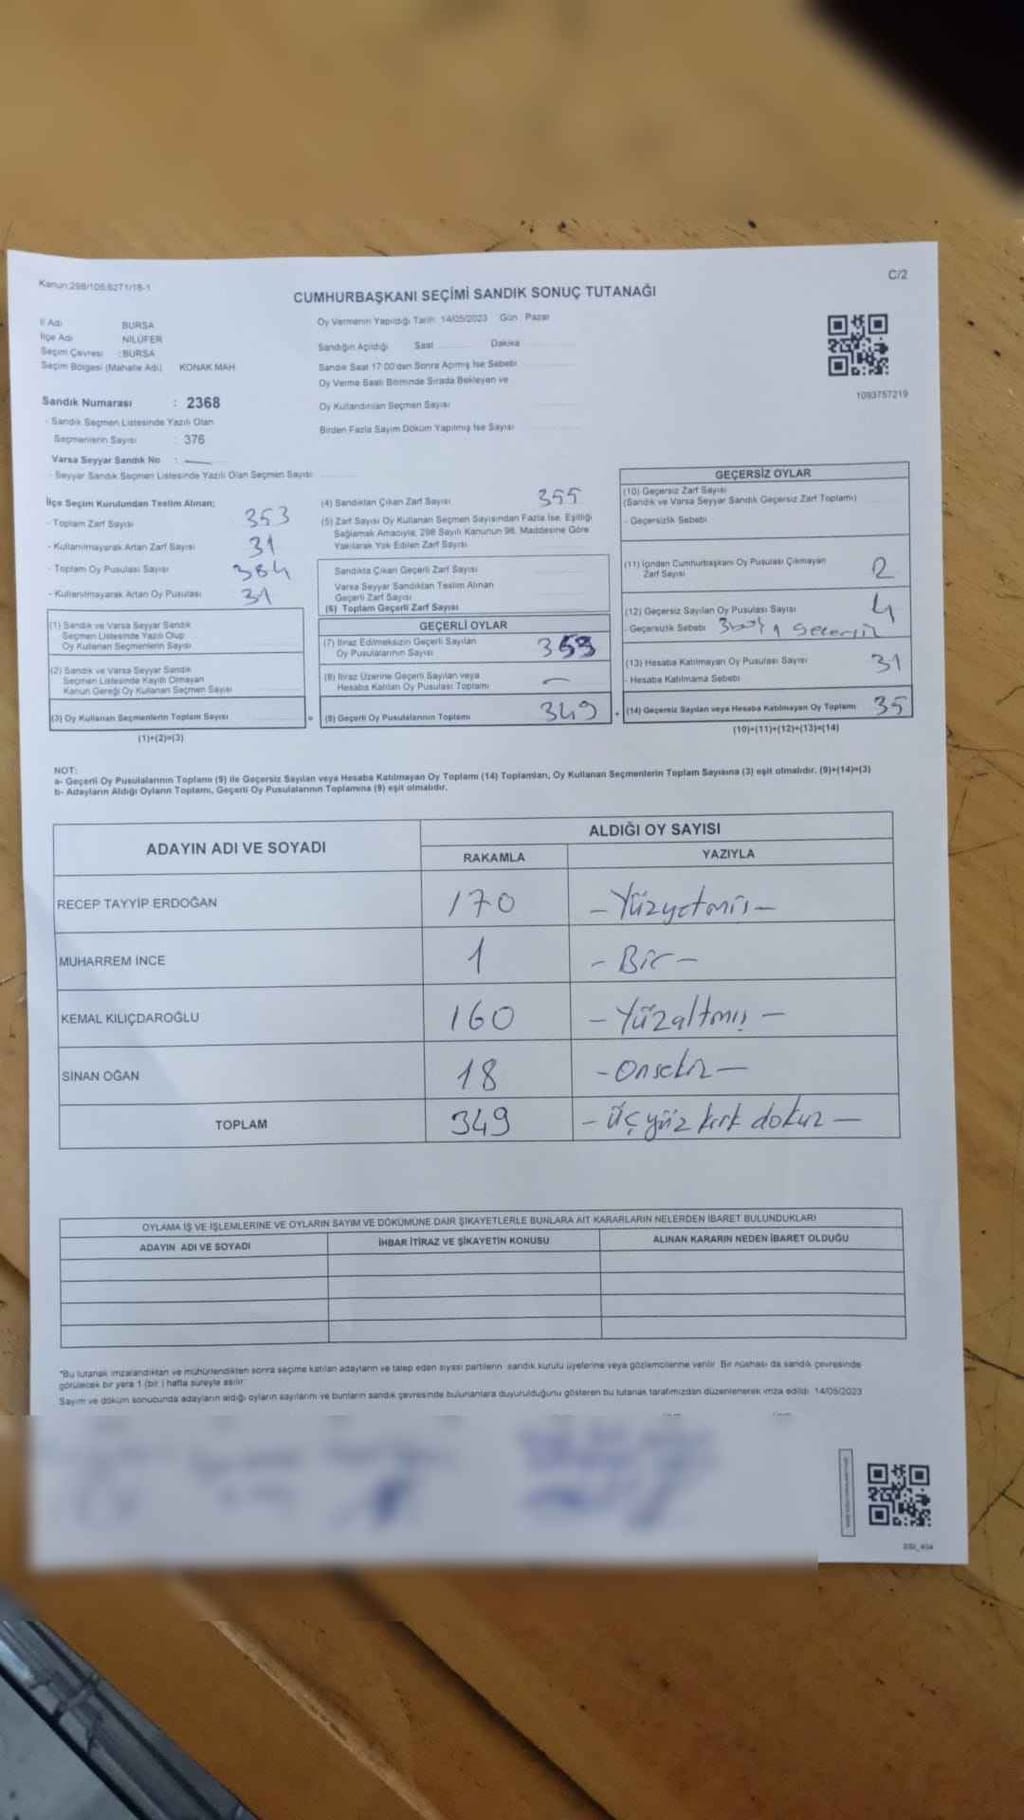 Kanun:298/105,6271/18-1
C/2
CUMHURBAŞKANI SEÇİMİ SANDIK SONUÇ TUTANAĞI
İl Adı BURSA
İlçe Adı NİLÜFER
Seçim Çevresi : BURSA
Seçim Bölgesi (Mahalle Adı) KONAK MAH
Sandık Numarası : 2368
- Sandık Seçmen Listesinde Yazılı Olan
Seçmenlerin Sayısı : 376
Varsa Seyyar Sandık No :
- Seyyar Sandık Seçmen Listesinde Yazılı Olan Seçmen Sayısı
Oy Vermenin Yapıldığı Tarih: 14/05/2023 Gün : Pazar
Sandığın Açıldığı Saat Dakika
Sandık Saat 17:00'den Sonra Açımış İse Sebebi
Oy Verme Saati Bitiminde Sırada Bekleyen ve
Oy Kullandırılan Seçmen Sayısı
Birden Fazla Sayım Döküm Yapılmış İse Sayısı
1093757219
İlçe Seçim Kurulundan Teslim Alınan;
- Toplam Zarf Sayısı 353
- Kullanılmayarak Artan Zarf Sayısı 31
- Toplam Oy Pusulası Sayısı 384
- Kullanılmayarak Artan Oy Pusulası 31
(1) Sandık ve Varsa Seyyar Sandık
Seçmen Listesinde Yazılı Olup
Oy Kullanan Seçmenlerin Sayısı
(2) Sandık ve Varsa Seyyar Sandık
Seçmen Listesinde Kayıtlı Olmayan
Kanun Gereği Oy Kullanan Seçmen Sayısı
(3) Oy Kullanan Seçmenlerin Toplam Sayısı
(1)+(2)=(3)
(4) Sandıktan Çıkan Zarf Sayısı 355
(5) Zarf Sayısı Oy Kullanan Seçmen Sayısından Fazla İse, Eşitliği
Sağlamak Amacıyla, 298 Sayılı Kanunun 98. Maddesine Göre
Yakılarak Yok Edilen Zarf Sayısı
Sandıkta Çıkan Geçerli Zarf Sayısı
Varsa Seyyar Sandıktan Teslim Alınan
Geçerli Zarf Sayısı
(6) Toplam Geçerli Zarf Sayısı
GEÇERLİ OYLAR
(7) İtiraz Edilmeksizin Geçerli Sayılan
Oy Pusulalarının Sayısı
(8) İtiraz Üzerine Geçerli Sayılan veya
Hesaba Katılan Oy Pusulası Toplamı —
= (9) Geçerli Oy Pusulalarının Toplamı 349
GEÇERSİZ OYLAR
(10) Geçersiz Zarf Sayısı
(Sandık ve Varsa Seyyar Sandık Geçersiz Zarf Toplamı)
- Geçersizlik Sebebi
(11) İçinden Cumhurbaşkanı Oy Pusulası Çıkmayan
Zarf Sayısı 2
(12) Geçersiz Sayılan Oy Pusulası Sayısı 4
- Geçersizlik Sebebi
(13) Hesaba Katılmayan Oy Pusulası Sayısı 31
- Hesaba Katılmama Sebebi
+ (14) Geçersiz Sayılan veya Hesaba Katılmayan Oy Toplamı 35
(10)+(11)+(12)+(13)=(14)
NOT:
a- Geçerli Oy Pusulalarının Toplamı (9) ile Geçersiz Sayılan veya Hesaba Katılmayan Oy Toplamı (14) Toplamları, Oy Kullanan Seçmenlerin Toplam Sayısına (3) eşit olmalıdır. (9)+(14)=(3)
b- Adayların Aldığı Oyların Toplamı, Geçerli Oy Pusulalarının Toplamına (9) eşit olmalıdır.
ADAYIN ADI VE SOYADI ALDIĞI OY SAYISI
RAKAMLA YAZIYLA
RECEP TAYYİP ERDOĞAN 170 - Yüzyetmiş -
MUHARREM İNCE 1 - Bir -
KEMAL KILIÇDAROĞLU 160 - Yüzaltmış -
SİNAN OĞAN 18 - Onsekiz -
TOPLAM 349 - Üçyüz kırk dokuz -
OYLAMA İŞ VE İŞLEMLERİNE VE OYLARIN SAYIM VE DÖKÜMÜNE DAİR ŞİKAYETLERLE BUNLARA AİT KARARLARIN NELERDEN İBARET BULUNDUKLARI
ADAYIN ADI VE SOYADI İHBAR İTİRAZ VE ŞİKAYETİN KONUSU ALINAN KARARIN NEDEN İBARET OLDUĞU
*Bu tutanak imzalandıktan ve mühürlendikten sonra seçime katılan adayların ve talep eden siyasi partilerin sandık kurulu üyelerine veya gözlemcilerine verilir. Bir nüshası da sandık çevresinde
görülecek bir yere 1 (bir) hafta süreyle asılır.
Sayım ve döküm sonucunda adayların aldığı oyların sayılarını ve bunların sandık çevresinde bulunanlara duyurulduğunu gösteren bu tutanak tarafımızdan düzenlenerek imza edildi. 14/05/2023